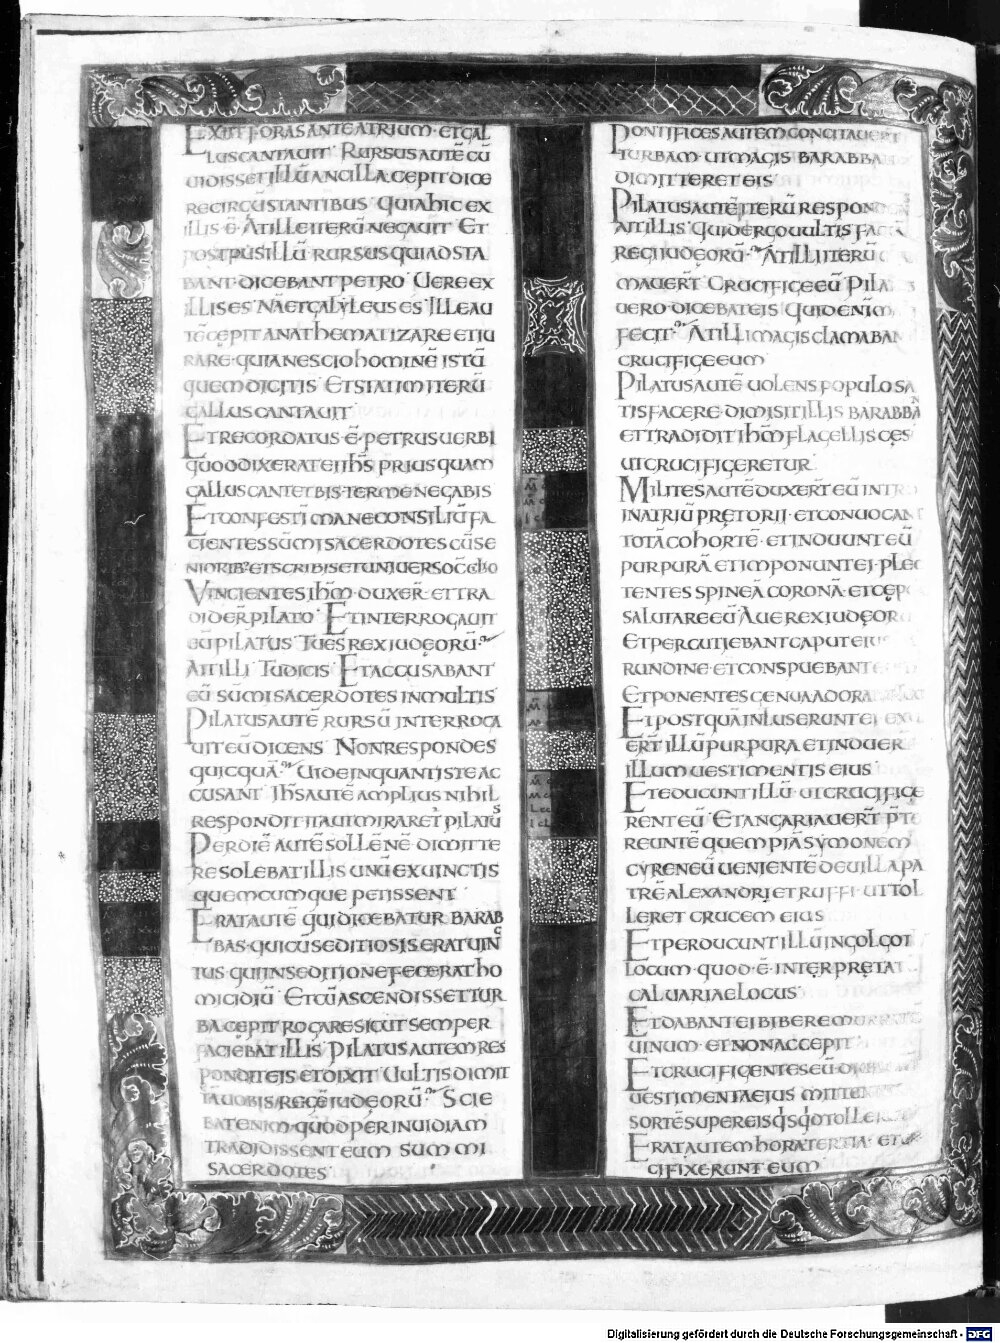 EXIIT FORAS ANTE ATRIUM · ET GAL
LUS CANTAUIT RURSUS AUTĒ CŪ
UIDISSET ILLŪ ANCILLA CEPIT DICE
RE CIRCŪSTANTIBUS QUIA HIC EX
ILLIS Ē· AT ILLE ITERŪ NEGAUIT ET
POST PUSILLŪ RURSUS QUI ADSTA
BANT· DICEBANT PETRO UERE EX
ILLIS ES NĀ ET GALYLEUS ES ILLE AU
TĒ CEPIT ANATHEMATIZARE ET IU
RARE· QUIA NESCIO HOMINĒ ISTŪ
QUEM DICITIS ET STATIM ITERŪ
GALLUS CANTAUIT
ET RECORDATUS Ē· PETRUS UERBI
QUOD DIXERAT EI IHS̄ PRIUS QUAM
GALLUS CANTET BIS· TER ME NEGABIS
ET CONFESTĪ MANE CONSILIŪ FA
CIENTES SŪMI SACERDOTES CŪ SE
NIORIB; ET SCRIBIS ET UNIUERSO
VINCIENTES IHM̄ DUXER̄· ET TRA
DIDER̄ PILATO ET INTERROGAUIT
EŪ PILATUS TU ES REX IUDĘORŪ·
AT ILLI TU DICIS ET ACCUSABANT
EŪ SŪMI SACERDOTES IN MULTIS
PILATUS AUTĒ RURSŪ INTERROGA
UIT EŪ DICENS NON RESPONDES
QUICQUĀ· UIDE IN QUANTIS TE AC
CUSANT IHS̄ AUTĒ AMPLIUS NIHIL
RESPONDIT ITA UT MIRARET PILATUS
PER DIĒ AUTĒ SOLLENĒ· DIMITTE
RE SOLEBAT ILLIS UNŪ EX UINCTIS
QUEMCUMQUE PETISSENT
ERAT AUTĒ QUI DICEBATUR BARAB
BAS· QUI CŪ SEDITIOSIS ERAT UINC
TUS· QUI IN SEDITIONE FECERAT HO
MICIDIŪ ET CŪ ASCENDISSET TUR
BA CEPIT ROGARE SICUT SEMPER
FACIEBAT ILLIS PILATUS AUTEM RES
PONDIT EIS ET DIXIT UULTIS DIMIT
TĀ UOBIS REGĒ IUDEORŪ· SCIE
BAT ENIM· QUOD PER INUIDIAM
TRADIDISSENT EUM SUMMI
SACERDOTES
PONTIFICES AUTEM CONCITAUERT
TURBAM· UT MAGIS BARABBA
DIMITTERET EIS
PILATUS AUTĒ ITERŪ RESPOND
AIT ILLIS QUID ERGO UULTIS FA
REGI IUDĘORŪ· AT ILLI ITERŪ
MAUERT̄ CRUCIFIGE EŪ PILA
UERO· DICEBAT EIS QUID ENIM
FECIT· AT ILLI MAGIS CLAMABAN
CRUCIFIGE EUM
PILATUS AUTĒ UOLENS POPULO SA
TISFACERE· DIMISIT ILLIS BARABBAN
ET TRADIDIT IHM̄ FLAGELLIS CES
UT CRUCIFIGERETUR
MILITES AUTĒ DUXERT̄ EŪ INTR
IN ATRIŪ PRĘTORII· ET CONUOCAN
TOTĀ COHORTĒ· ET INDUUNT EŪ
PURPURĀ ET IMPONUNT EI· PLEC
TENTES SPINEĀ CORONĀ· ET CĘP
SALUTARE EŪ AUE REX IUDĘOR
ET PERCUTIEBANT CAPUT EIUS
RUNDINE· ET CONSPUEBANT
ET PONENTES GENUA ADORA
ET POSTQUĀ INLUSERUNT EI EXU
ERT̄ ILLŪ PURPURA ET INDUER̄
ILLUM UESTIMENTIS EIUS
ET EDUCUNT ILLŪ· UT CRUCIFIGE
RENT EŪ ET ANGARIAUERT̄ PT̄E
REUNTĒ QUEMPIĀ SYMONEM
CYRENEŪ UENIENTĒ DE UILLA PA
TRĒ ALEXANDRI ET RUFFI· UT TOL
LERET CRUCEM EIUS
ET PERDUCUNT ILLŪ IN GOLGOT
LOCUM· QUOD Ē· INTERPRĘTAT
CALUARIAE LOCUS
ET DABANT EI BIBERE MURRATŪ
UINUM· ET NON ACCEPIT
ET CRUCIFIGENTES EŪ·
UESTIMENTA EIUS MITTEN
SORTĒ SUPER EIS QS QD TOLLE
ERAT AUTEM HORA TERTIA· ET
CIFIXERUNT EUM
Digitalisierung gefördert durch die Deutsche Forschungsgemeinschaft - DFG